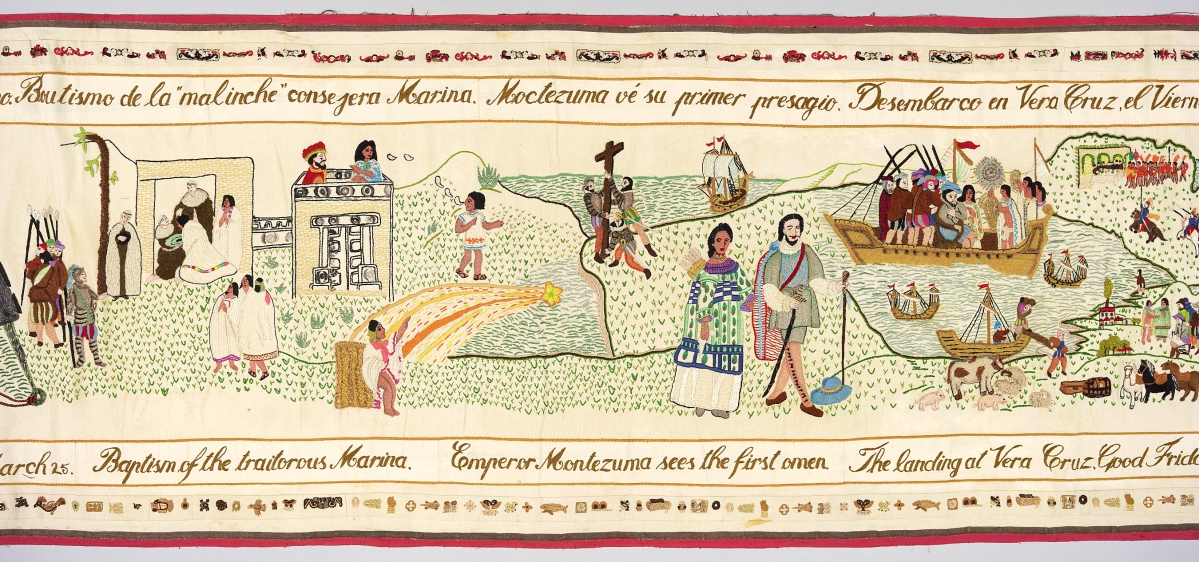 no. Boutismo de la "malinche" consejera Marina. Moctezuma vé su primer presagio. Desembarco en Vera Cruz, el Viern
arch 25. Baptism of the traitorous Marina. Emperor Montezuma sees the first omen The landing at Vera Cruz, Good Frida